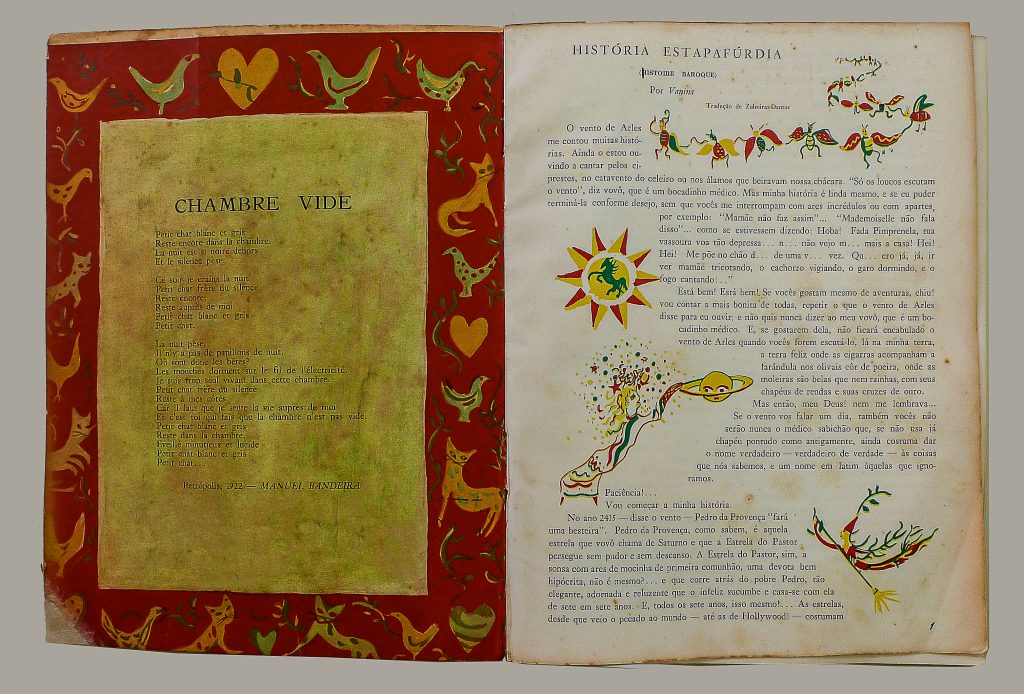 CHAMBRE VIDE
Petit chat blanc et gris
Reste encore dans la chambre.
La nuit est si noire dehors
Et le silence pèse.
Ce soir je crains la nuit.
Petit chat frère du silence
Reste encore
Reste auprès de moi
Petit chat blanc et gris
Petit chat.
La nuit pèse.
Il n'y a pas de papillons de nuit.
Où sont donc les bêtes?
Les mouches dorment sur le fil de l'électricité.
Je suis trop seul vivant dans cette chambre.
Petit chat frère du silence
Reste à mes côtés
Car il faut que je sente la vie auprès de moi
Et c'est toi qui fais que la chambre n'est pas vide.
Petit chat blanc et gris
Reste dans la chambre.
Eveillé minutieux et lucide
Petit chat blanc et gris
Petit chat...
Petrópolis, 1922 — MANUEL BANDEIRA
HISTÓRIA ESTAPAFÚRDIA
(HISTOIRE BAROQUE)
Por Vanina
Tradução de Zulmira Dantas
O vento de Arles
me contou muitas histó-
rias. Ainda o estou ou-
vindo a cantar pelos ci-
prestes, no catavento do celeiro ou nos álamos que beiravam nossa chácara. "Só os loucos escutam
o vento", diz vovô, que é um bocadinho médico. Mas minha história é linda mesmo, e se eu puder
terminá-la conforme desejo, sem que vocês me interrompam com ares incrédulos ou com apartes,
por exemplo: "Mamãe não faz assim"... "Mademoiselle não fala
disso"... como se estivessem dizendo: Hoba! Fada Pimprenela, tua
vassoura voa tão depressa... n... não vejo m... mais a casa! Hei!
Hei! Me põe no chão d... de uma v... vez. Qu... ero já, já, ir
ver mamãe tricotando, o cachorro vigiando, o gato dormindo, e o
fogo cantando!..."
Está bem! Está bem! Se vocês gostam mesmo de aventuras, chiu!
vou contar a mais bonita de todas, repetir o que o vento de Arles
disse para eu ouvir; e não quis nunca dizer ao meu vovô, que é um bo-
cadinho médico. E, se gostarem dela, não ficará encabulado o
vento de Arles quando vocês forem escutá-lo, lá na minha terra,
a terra feliz onde as cigarras acompanham a
farândula nos olivais côr de poeira, onde as
moleiras são belas que nem rainhas, com seus
chapéus de rendas e suas cruzes de ouro.
Mas então, meu Deus! nem me lembrava...
Se o vento vos falar um dia, também vocês não
serão nunca o médico sabichão que, se não usa já
chapéu pontudo como antigamente, ainda costuma dar
o nome verdadeiro — verdadeiro de verdade — às coisas
que nós sabemos, e um nome em latim àquelas que igno-
ramos.
Paciência!...
Vou começar a minha história.
No ano 2415 — disse o vento — Pedro da Provença "fará
uma besteira". Pedro da Provença, como sabem, é aquela
estrela que vovô chama de Saturno e que a Estrela do Pastor
persegue sem pudor e sem descanso. A Estrela do Pastor, sim, a
sonsa com ares de mocinha de primeira comunhão, uma devota bem
hipócrita, não é mesmo?... e que corre atrás do pobre Pedro, tão
elegante, adornada e reluzente que o infeliz sucumbe e casa-se com ela
de sete em sete anos. E, todos os sete anos, isso mesmo!... As estrelas,
desde que veio o pecado ao mundo — até as de Hollywood! — costumam
1